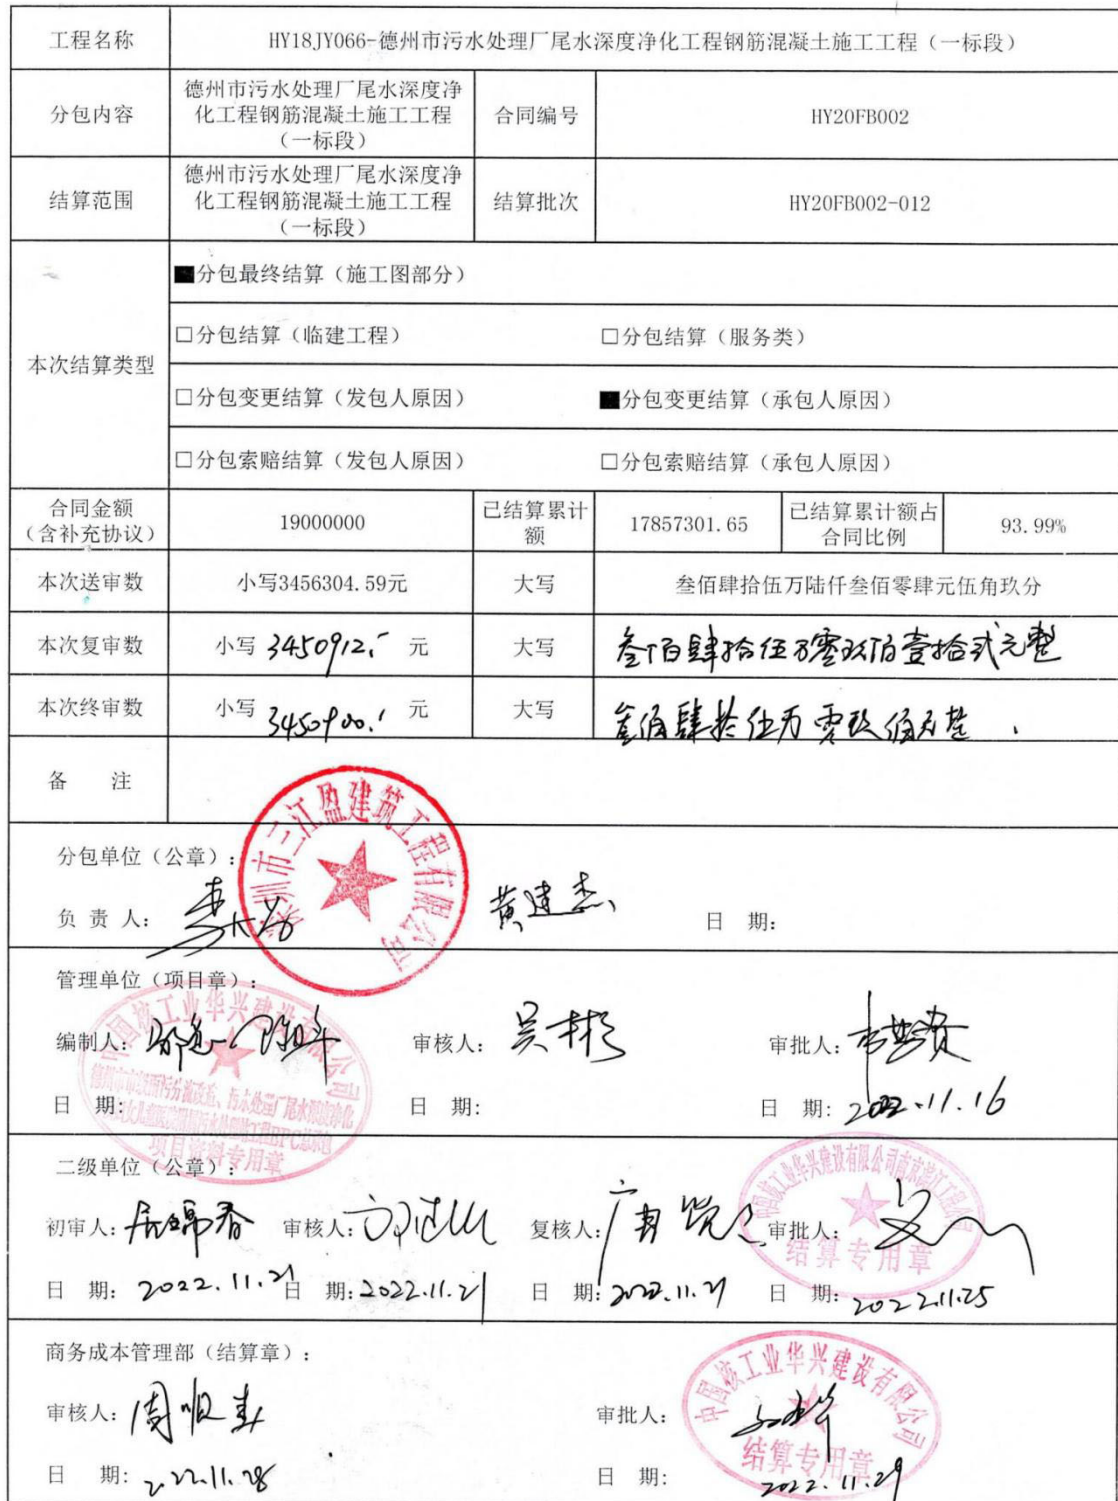 工程名称 HY18JY066-德州市污水处理厂尾水深度净化工程钢筋混凝土施工工程（一标段）
分包内容
德州市污水处理厂尾水深度净
化工程钢筋混凝土施工工程
（一标段）
合同编号 HY20FB002
结算范围
德州市污水处理厂尾水深度净
化工程钢筋混凝土施工工程
（一标段）
结算批次 HY20FB002-012
本次结算类型
■分包最终结算（施工图部分）
□分包结算（临建工程） □分包结算（服务类）
□分包变更结算（发包人原因） ■分包变更结算（承包人原因）
□分包索赔结算（发包人原因） □分包索赔结算（承包人原因）
合同金额
（含补充协议）
19000000
已结算累计
额
17857301.65
已结算累计额占
合同比例
93.99%
本次送审数 小写3456304.59元 大写 叁佰肆拾伍万陆仟叁佰零肆元伍角玖分
本次复审数 小写 3450912.- 元 大写 叁佰肆拾伍万零玖佰壹拾贰元整
本次终审数 小写 3450900.- 元 大写 叁佰肆拾伍万零玖佰元整
备 注
深圳市三江盈建筑工程有限公司
分包单位（公章）：
负 责 人： 黄建杰 日 期：
管理单位（项目章）：
中国核工业华兴建设有限公司
编制人： 审核人：吴彬 审批人：
项目资料专用章
日 期： 日 期： 日 期：2022.11.16
二级单位（公章）：
初审人： 审核人： 复核人： 审批人：
结算专用章
日 期：2022.11.21 日 期：2022.11.21 日 期：2022.11.21 日 期：2022.11.25
商务成本管理部（结算章）：
中国核工业华兴建设有限公司
审核人： 审批人：
结算专用章
日 期：2022.11.28 日 期：2022.11.29